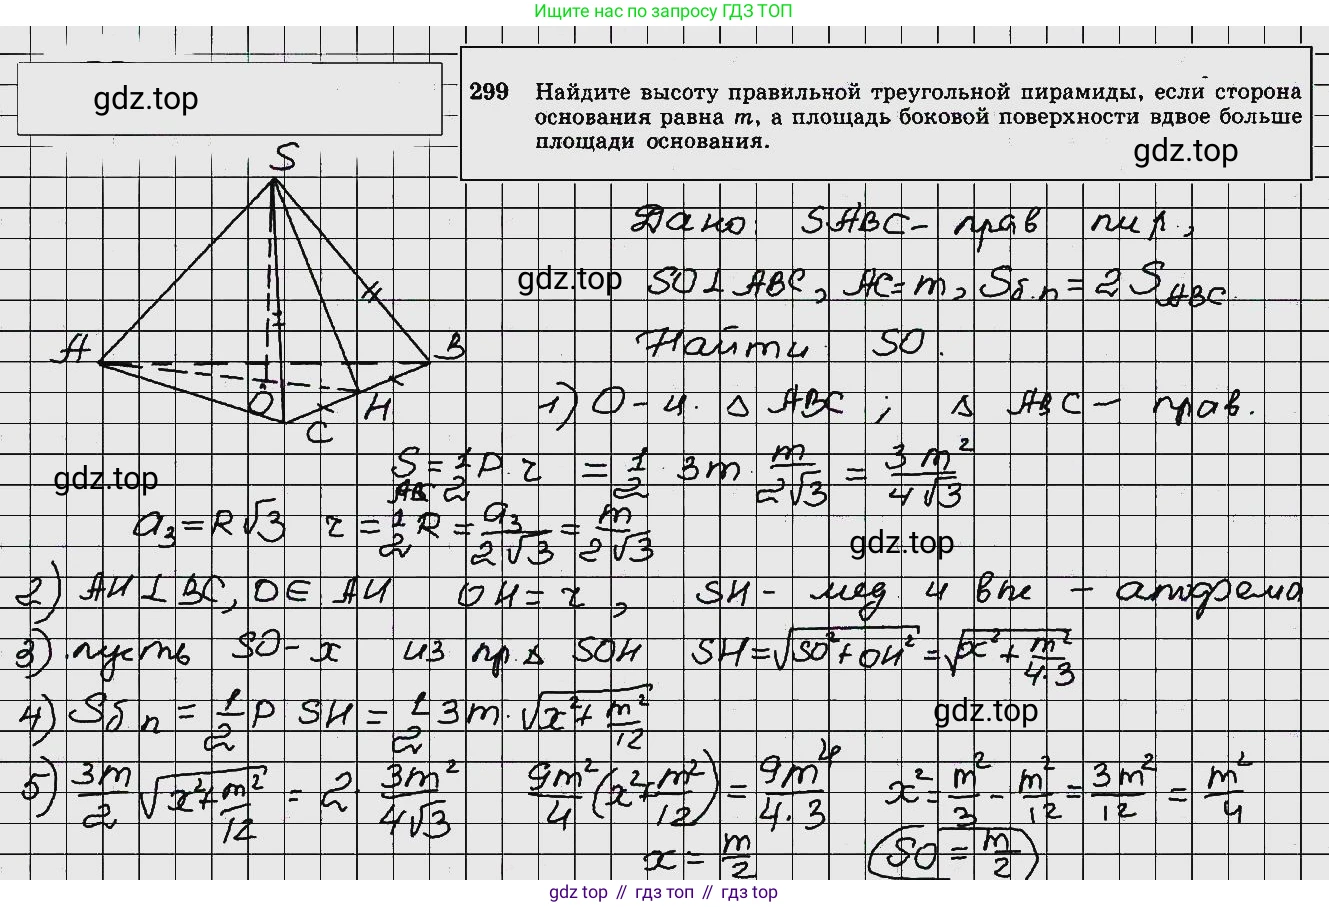 Ищите нас по запросу ГДЗ ТОП
gdz.top
299 Найдите высоту правильной треугольной пирамиды, если сторона
основания равна m, а площадь боковой поверхности вдвое больше
площади основания.
gdz.top
S
A
B
O
H
C
Дано: SABC - прав пир.,
gdz.top
SO⊥ABC, AC=m, Sб.п=2 S_ABC
Найти SO.
1) O - ц. △ ABC ; △ ABC - прав.
gdz.top
S_ABC = 1/2 P·r = 1/2 3m · m/(2√3) = 3m²/(4√3)
a₃=R√3 r = 1/2 R = a₃/(2√3) = m/(2√3)
gdz.top
2) AH⊥BC, O∈AH OH=r, SH - мед и выс - апофема
3) пусть SO - x из пр △ SOH SH=√(SO²+OH²)=√(x²+m²/(4·3))
4) Sбп = 1/2 P SH = 1/2 3m·√(x²+m²/12)
gdz.top
5) 3m/2 √(x²+m²/12) = 2· 3m²/(4√3) 9m²/4 (x²+m²/12) = 9m⁴/(4·3) x²=m²/3 - m²/12 = 3m²/12 = m²/4
x = m/2 SO = m/2
gdz.top // гдз топ // гдз top